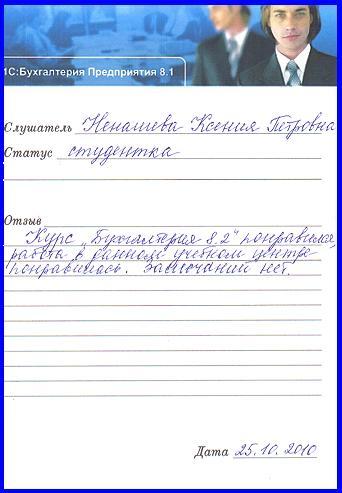 1С:Бухгалтерия Предприятия 8.1
Слушатель Ненашева Ксения Петровна
Статус студентка
Отзыв
Курс „Бухгалтерия 8.2" понравился,
работа в данном учебном центре
понравилась. Замечаний нет.
Дата 25.10.2010